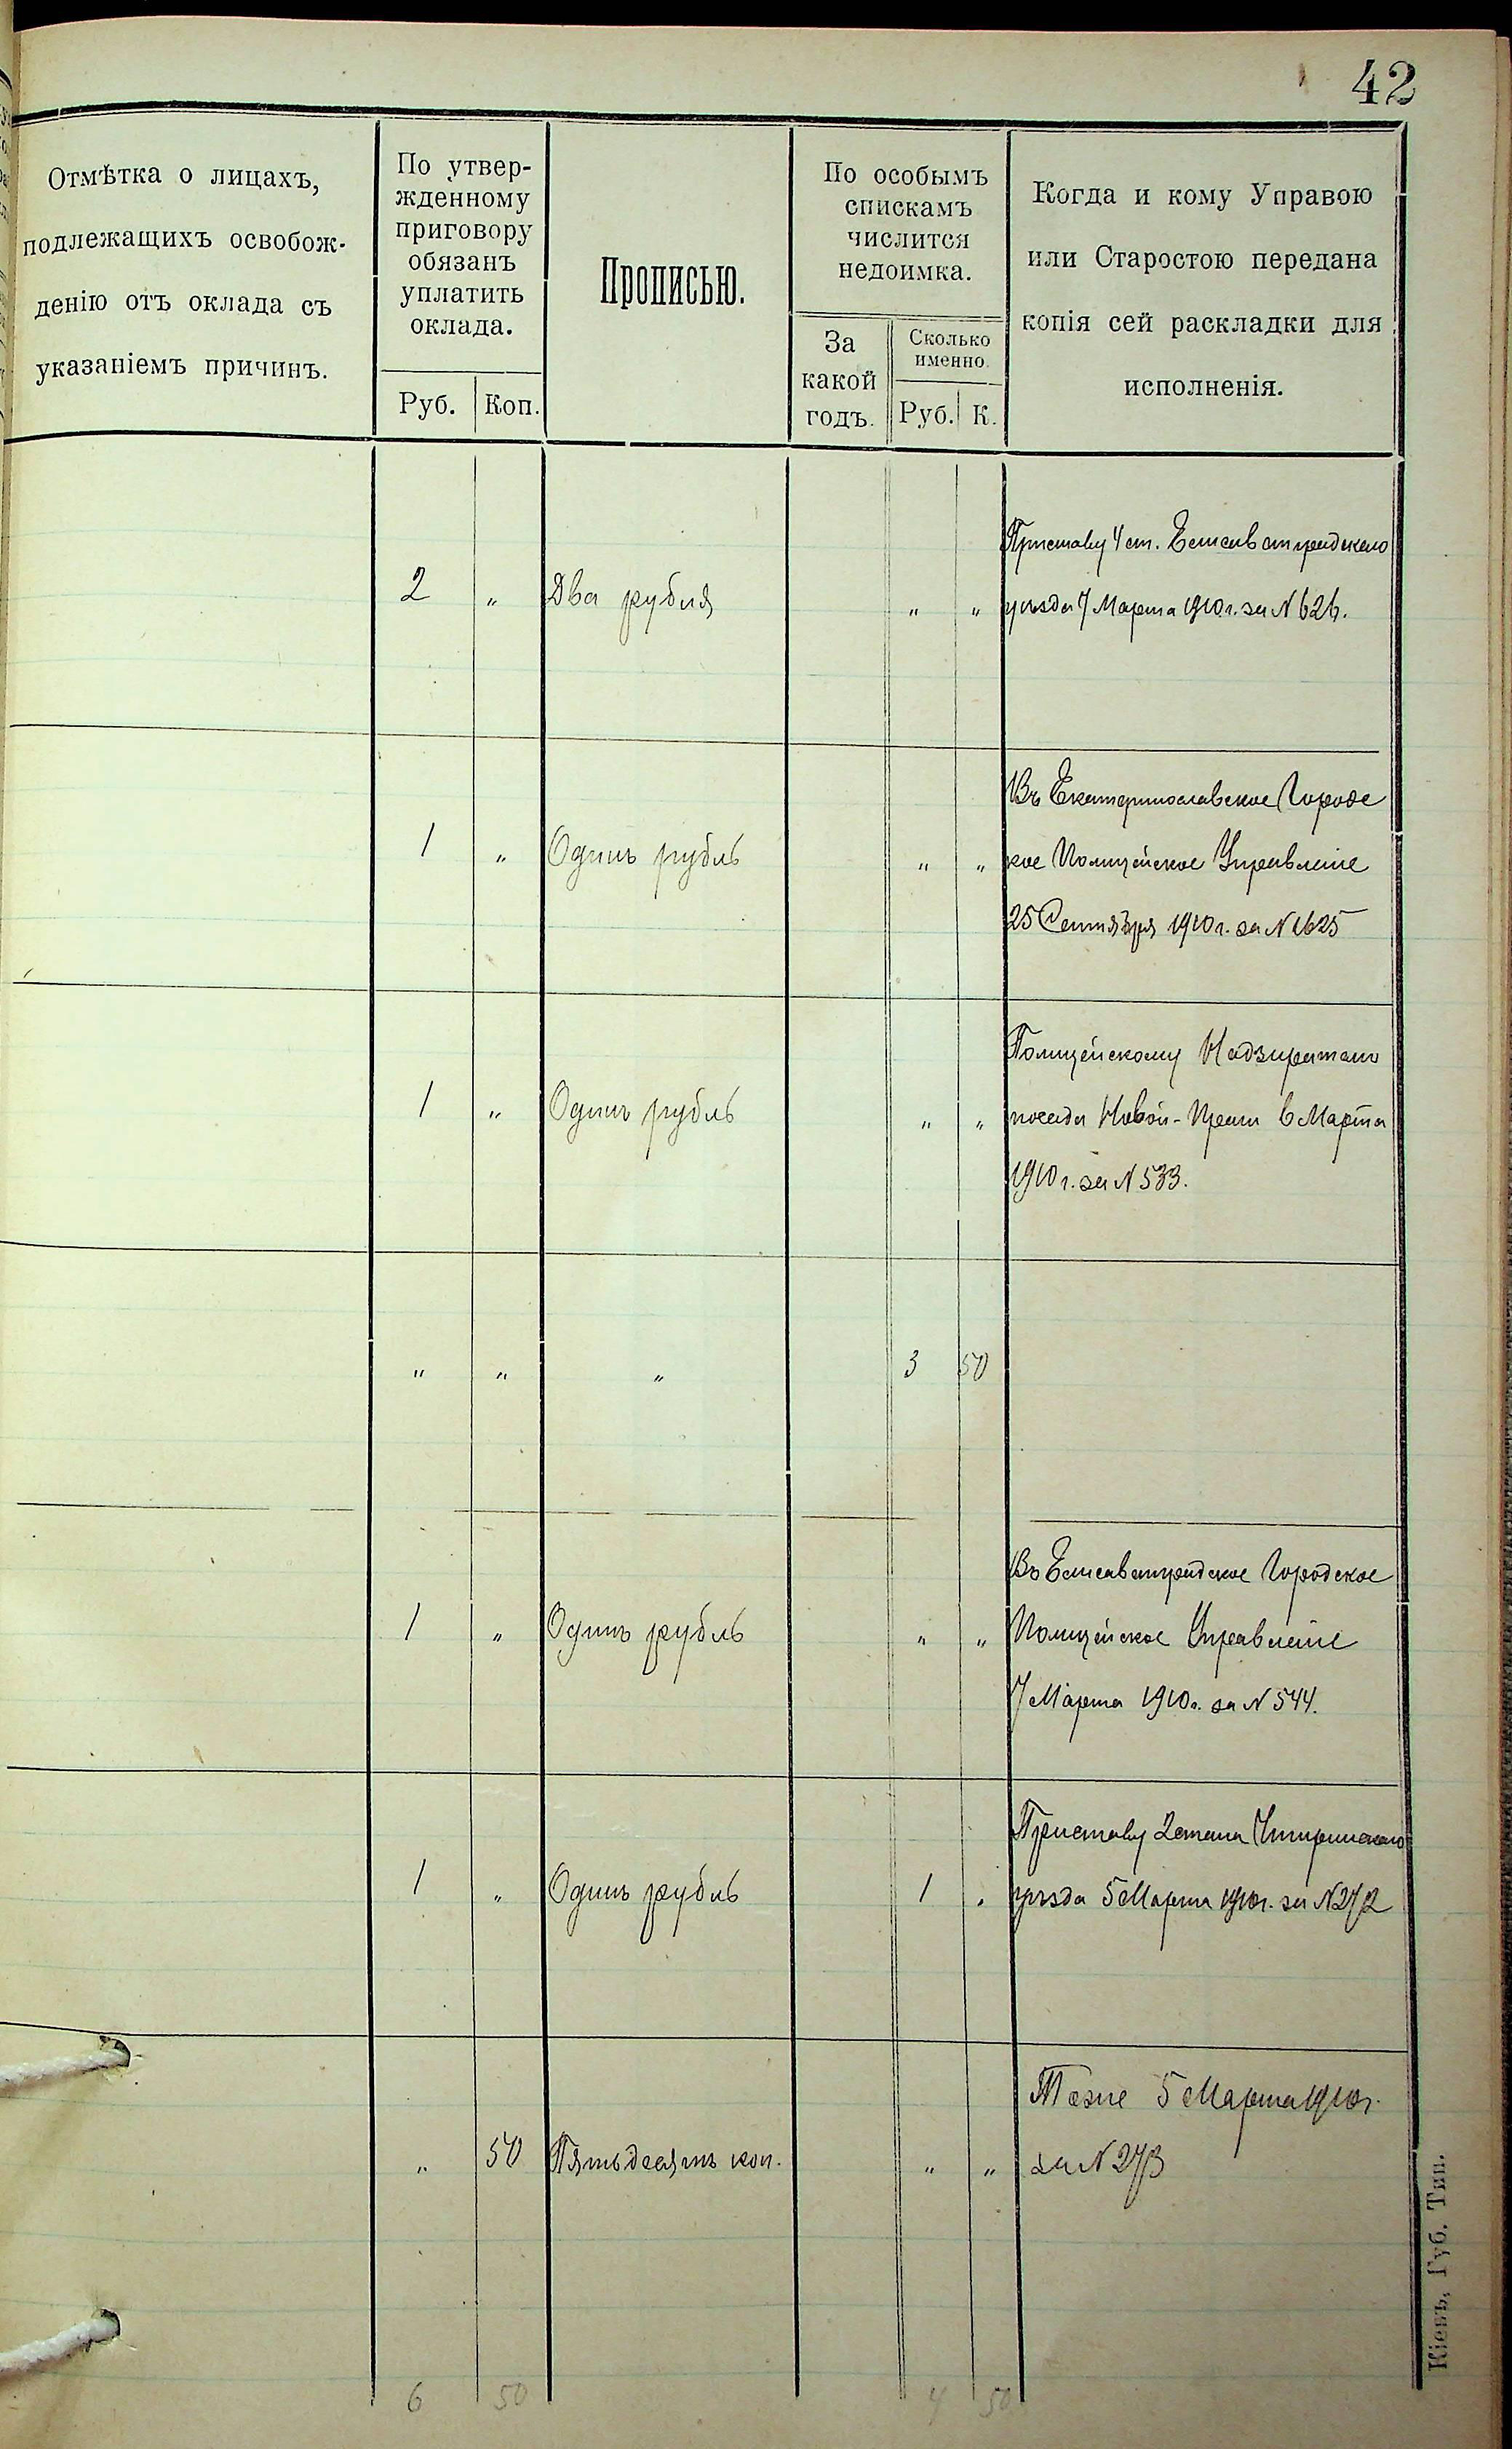 42
Отмѣтка о лицахъ,
подлежащихъ освобож-
денію отъ оклада съ
указаніемъ причинъ.
По утвер-
жденному
приговору
обязанъ
уплатить
оклада.
Руб. Коп.
Прописью.
По особымъ
спискамъ
числится
недоимка.
За
какой
годъ.
Сколько
именно.
Руб. К.
Когда и кому Управою
или Старостою передана
копія сей раскладки для
исполненія.
Приставу 4 ст. Елисаветградскаго
2 „ Два рубля „ „ уѣзда 7 Марта 1910 г. за N 626.
Въ Екатеринославское Городс
1 „ Одинъ рубль „ „ кое Полицейское Управленіе
25 Сентября 1910 г. за N 1625
Полицейскому Надзирателю
1 „ Одинъ рубль „ „ посада Новой-Праги 6 Марта
1910 г. за N 533.
„ „ „ 3 50
Въ Елисаветградское Городское
1 „ Одинъ рубль „ „ Полицейское Управленіе
7 Марта 1910 г. за N 544.
Приставу 2 стана Чигиринскаго
1 „ Одинъ рубль 1 „ уѣзда 5 Марта 1910 г. за N 272
Тоже 5 Марта 1910 г.
„ 50 Пятьдесятъ коп. „ „ за N 273
6 50 4 50
Кіевъ, Губ. Тип.